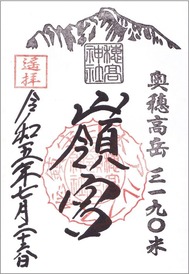 奥穂高岳 三一九〇米
穂高神社
嶺宮
遥拝
令和五年七月二十